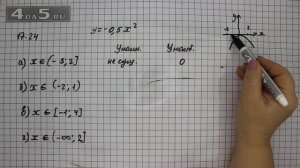 4NA5.RU
17.24
y = -0,5x²
Унаим. Унаиб.
а) x ∈ (-3; 2] не сущ. 0
б) x ∈ (-2; 1)
в) x ∈ [-1; 4]
г) x ∈ (-∞; 2]
y
x